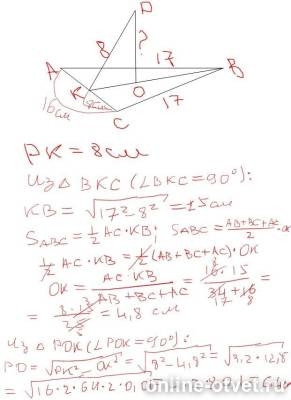 D
8
?
17
A
B
K
O
16см
8см
17
C
PK = 8см
Из △ BKC (∠BKC=90°):
KB = √17² 8² = 15см
S_ABC = 1/2 AC·KB; S_ABC = (AB+BC+AC)/2 ·
1/2 AC·KB = 1/2 (AB+BC+AC)·OK
OK = AC·KB / AB+BC+AC = 16·15 / 34+16 =
= 4,8 см
Из △ POK (∠POK=90°):
PO = √PK² - OK² = √8²-4,8² = √3,2·12,8
= √16·2·64·2·0,
online-otvet.ru